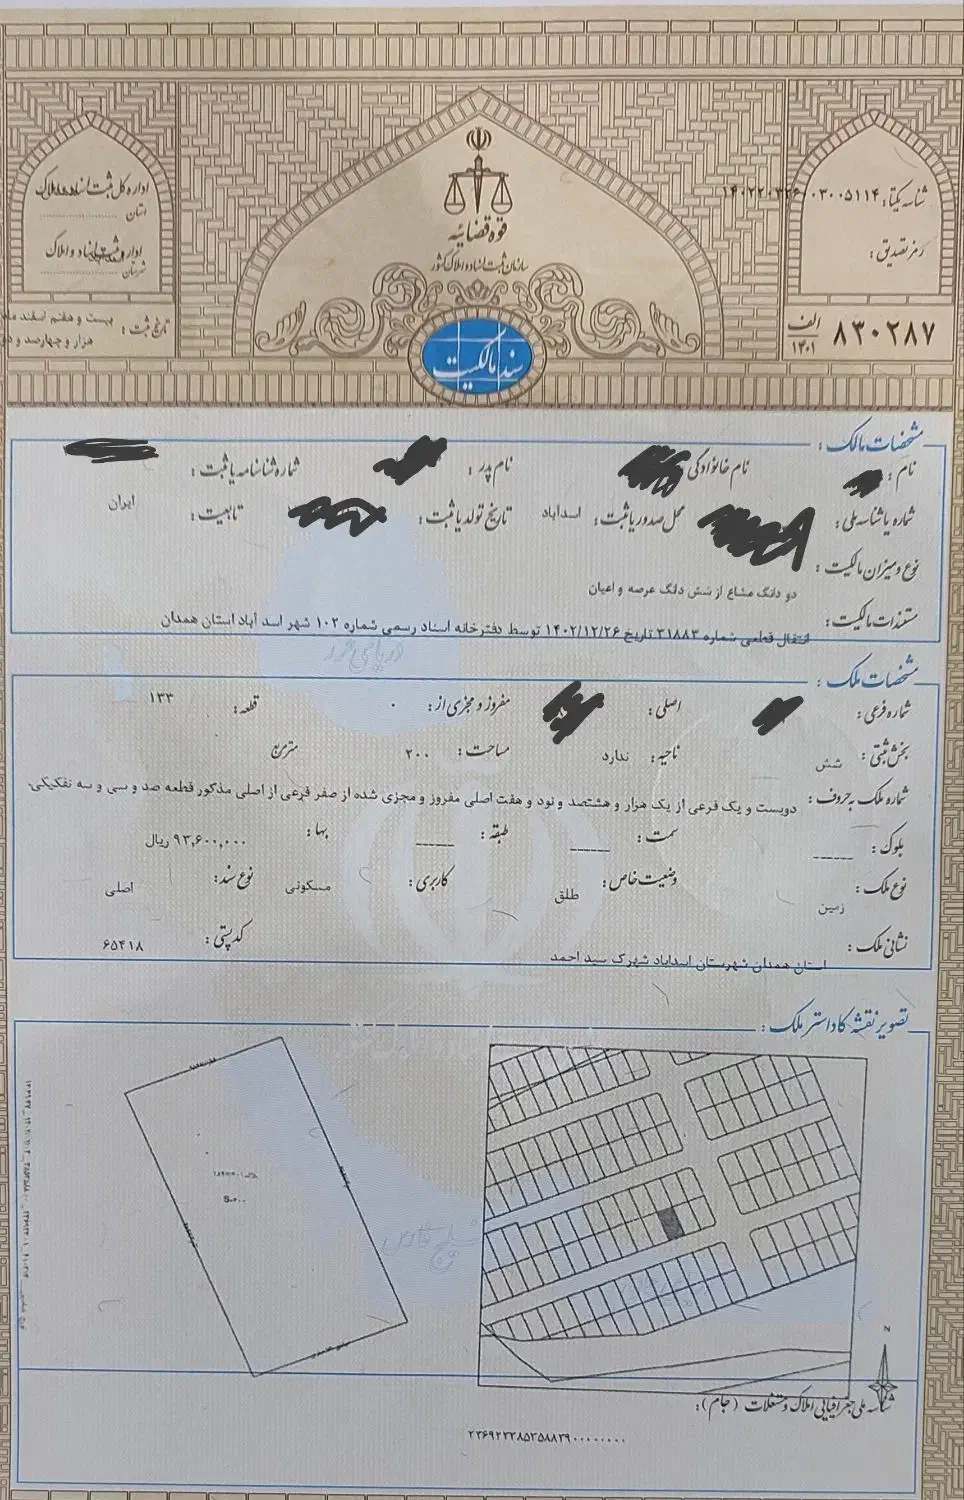 قوه قضائیه
سازمان ثبت اسناد و املاک کشور
سند مالکیت
شناسه یکتا:
رمز تصدیق:
الف
۱۴۰۱
۸۳۰۲۸۷
اداره کل ثبت اسناد و املاک
استان
اداره ثبت اسناد و املاک
شهرستان
تاریخ ثبت: بیست و هفتم اسفند ماه
هزار و چهارصد و دو
مشخصات مالک:
نام: نام خانوادگی نام پدر: شماره شناسنامه یا ثبت:
شماره یا شناسه ملی: محل صدور یا ثبت: اسداباد تاریخ تولد یا ثبت: تابعیت: ایران
نوع و میزان مالکیت:
دو دانگ مشاع از شش دانگ عرصه و اعیان
مستندات مالکیت:
انتقال قطعی شماره ۳۱۸۸۳ تاریخ ۱۴۰۲/۱۲/۲۶ توسط دفترخانه اسناد رسمی شماره ۱۰۲ شهر اسد آباد استان همدان
مشخصات ملک:
شماره فرعی: اصلی: مفروز و مجزی از: ۰ قطعه: ۱۳۳
بخش ثبتی: شش ناحیه: ندارد مساحت: ۲۰۰ مترمربع
شماره ملک به حروف: دویست و یک فرعی از یک هزار و هشتصد و نود و هفت اصلی مفروز و مجزی شده از صفر فرعی از اصلی مذکور قطعه صد و سی و سه تفکیکی.
بلوک: _____ سمت: _____ طبقه: _____ بها: ۹۳,۶۰۰,۰۰۰ ریال
نوع ملک: زمین وضعیت خاص: طلق کاربری: مسکونی نوع سند: اصلی
نشانی ملک: استان همدان شهرستان اسداباد شهرک سید احمد کد پستی: ۶۵۴۱۸
تصویر نقشه کاداستر ملک:
دریای خزر
خلیج فارس
N
شناسه ملی جغرافیایی املاک و مستغلات (جام):